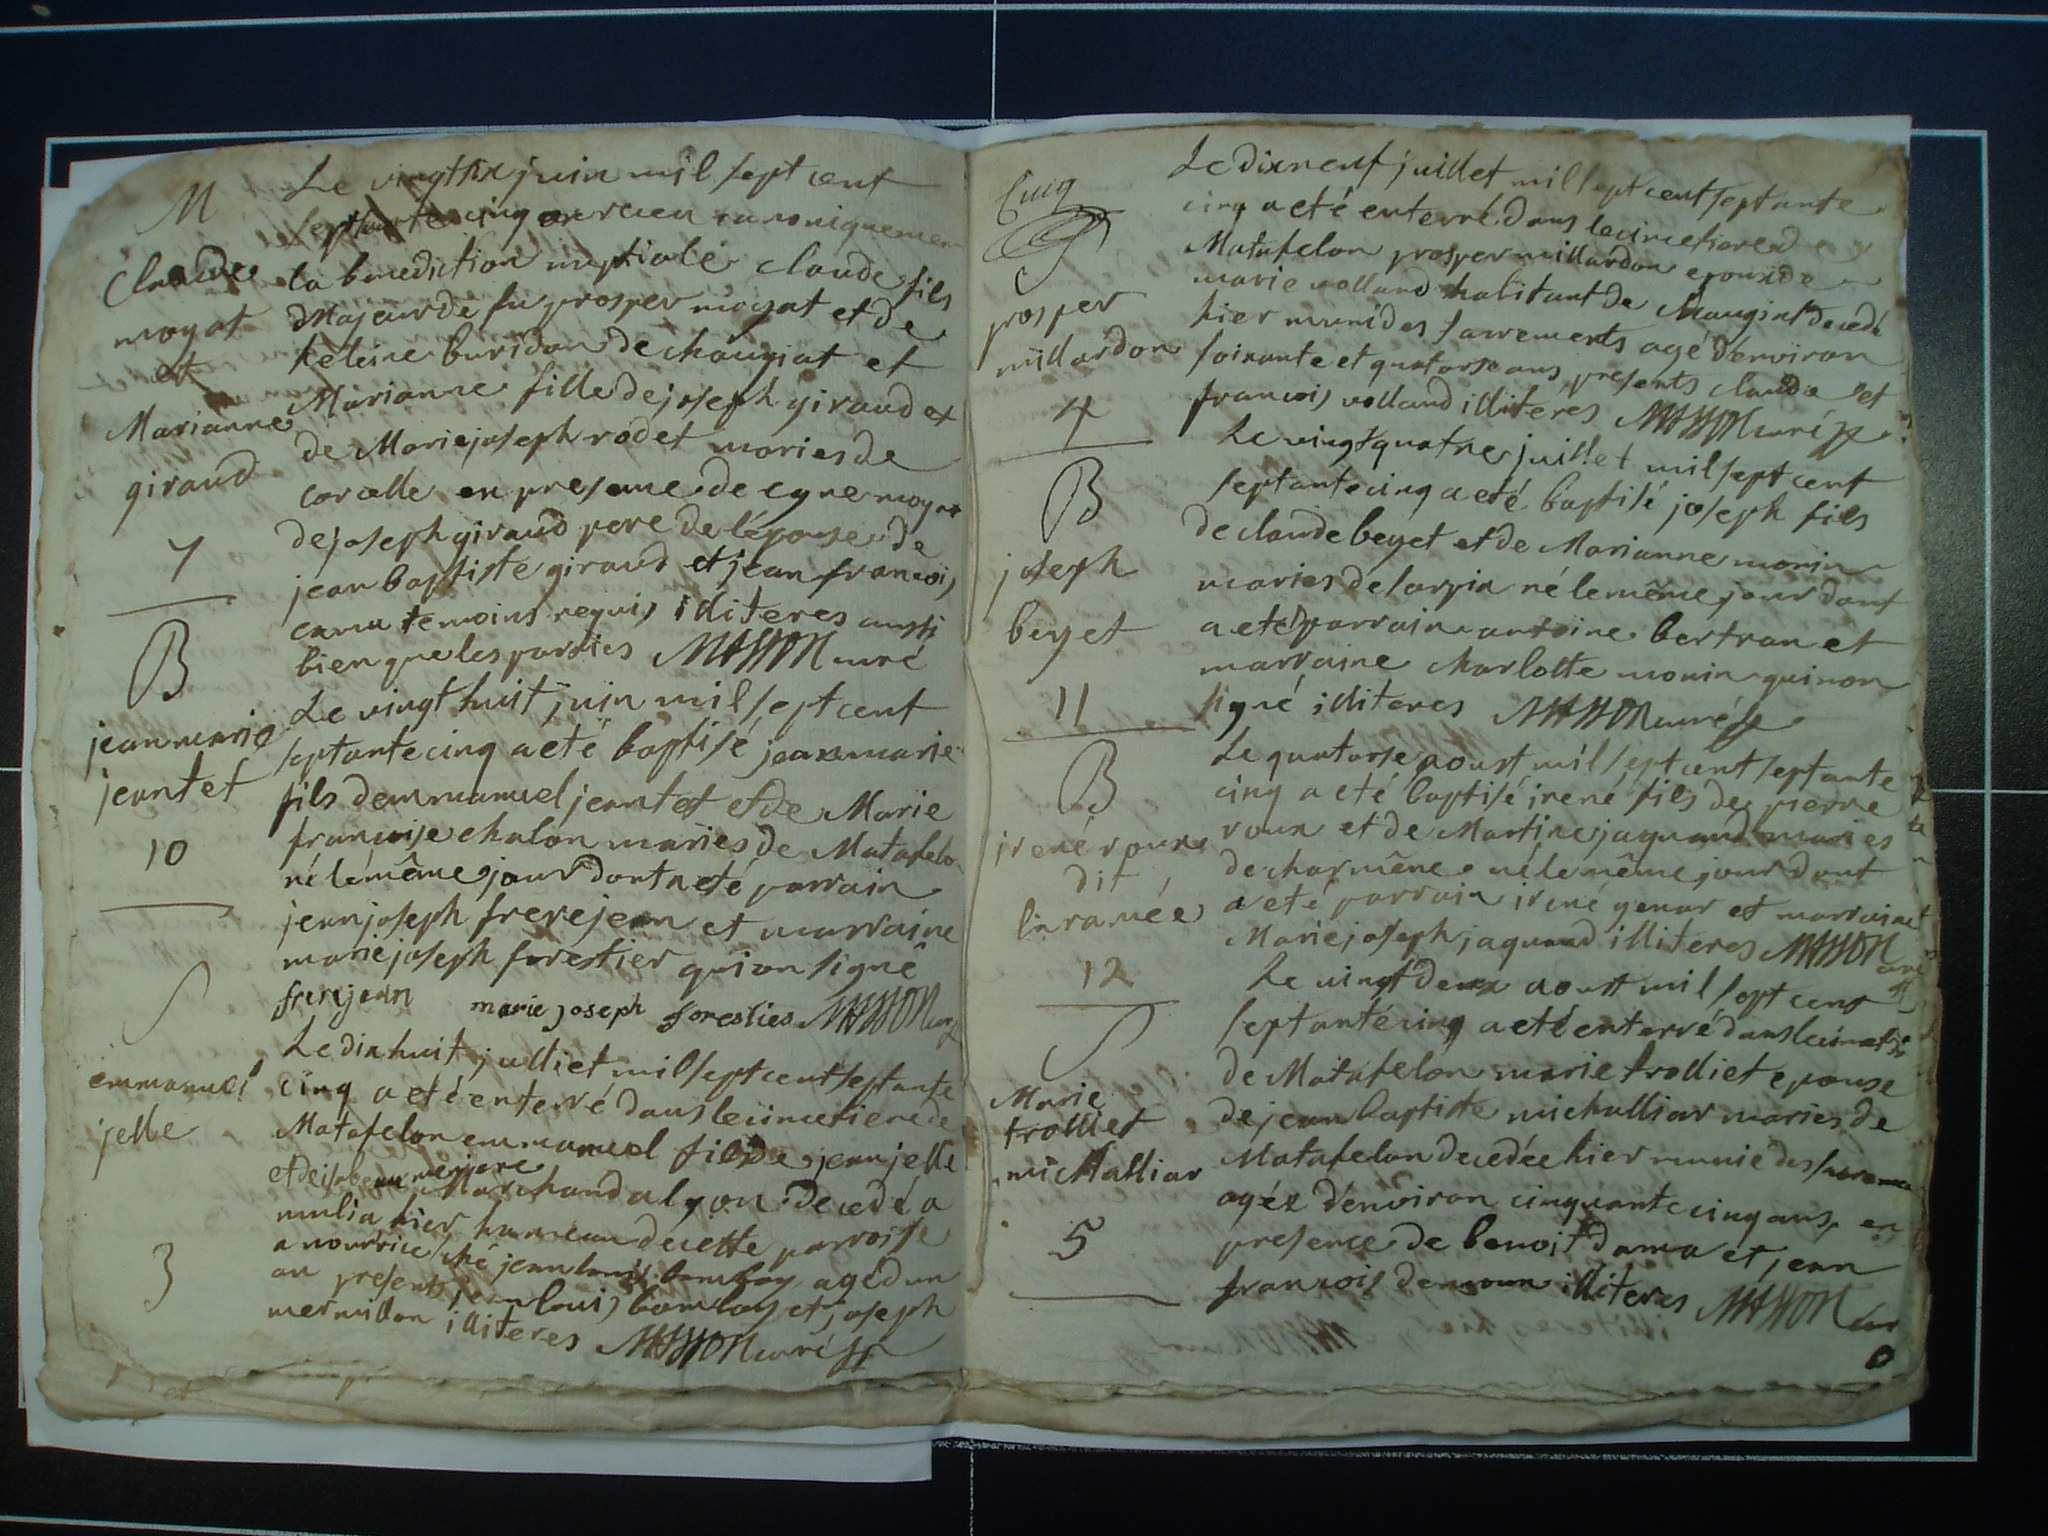 M
Claude
moyat
et
Marianne
giraud
7
Le vingt six juin mil sept cent
septante cinq on recu canoniquemen
la benediction nuptiale claude fils
Majeur de fu prosper moyat et de
heleine buridon de chougiat et
Marianne fille de joseph giraud et
de Marie joseph rodet maries de
corcelle en presence de moyat
de joseph giraud pere de lépouse de
jean baptiste giraud et jean francois
temoins requis illiteres aussi
bien que les parties MASSON curé
B
jean marie
jeantet
10
Le vingt huit juin mil sept cent
septante cinq a eté baptisé jean marie
fils demmanuel jeantet et de Marie
francoise chalon maries de Matafelo
né lemême jour dont a eté parrain
jean joseph frerejean et marraine
marie joseph forestier qui on signé
frerejean marie joseph foresties MASSON
S
emmanuel
jelle
3
Le dix huit julliet mil sept cent septante
cinq a eté enterré dans lecimetiere de
Matafelon emmanuel fils de jean jelle
et
Marchand a lyon decedé a
mulia hier hameau de cette parroisse
a nourrice ché jean louis bomboy agé dun
an presents jean louis bomboy et joseph
mermillon illiteres MASSON curé
prosper
millardon
4
Le dixneuf juillet mil sept cent septante
cinq a eté enterré dans lecimetiere de
Matafelon prosper millardon epoux de
marie volland habitant de Chaugiat decedé
hier muni des sacrements agé d'environ
soixante et quatorse ans presents claude et
francois volland illiteres MASSON curé
B
joseph
beyet
11
Le vingt quatre juillet mil sept cent
septante cinq a eté baptisé joseph fils
de claude beyet et de Marianne monin
maries de sarpia né le même jour dont
a eté parrain antoine bertran et
marraine charlotte monin qui non
signé illiteres MASSON curé
B
irené roux
dit
la ramée
12
Le quatorse aoust mil sept cent septante
cinq a eté baptisé irené fils de pierre
roux et de Martine jaquand maries
de charmêne né le même jour dont
a eté parrain irené genar et marraine
Marie joseph jaquand illiteres MASSON curé
S
Marie
trolliet
michalliar
5
Le vingt deux aoust mil sept cent
septante cinq a eté enterré dans
de Matafelon marie trolliet epouse
de jean baptiste michalliar maries de
Matafelon decedée hier munie des
agée d'environ cinquante cinq ans en
presence de benoit dama et jean
francois illiteres MASSON cur